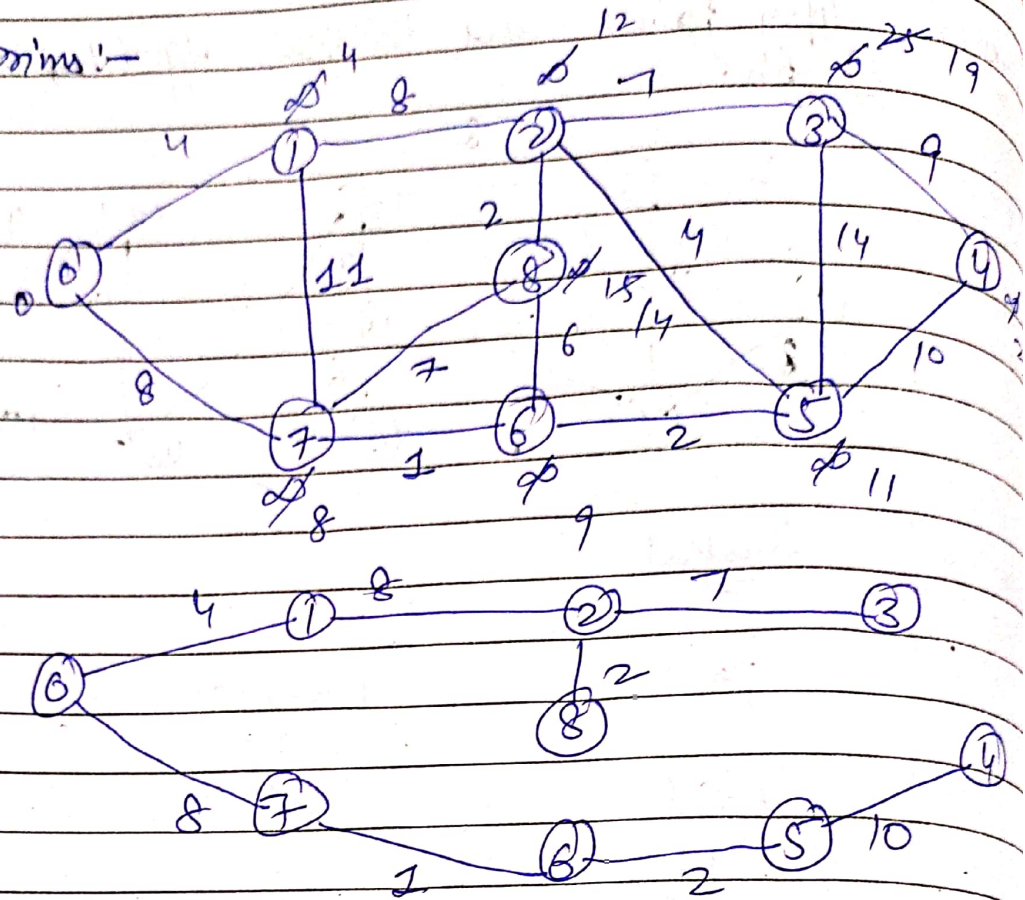 Prims :-
4 12 25 19
∞ 8 ∞ 7 ∞
4 1 2 3 9
2 4 14
0 0 11 8 ∞ 15 14 4
8 7 6 10
7 1 6 2 5
∞ 8 ∞ 9 ∞ 11
4 1 8 2 7 3
0 2
8 4
8 7 6 5 10
1 2